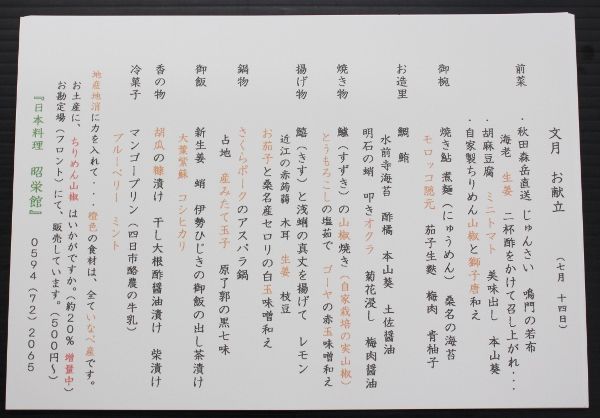 文月 お献立 (七月 十四日)
前菜 ・秋田森岳直送 じゅんさい 鳴門の若布
海老 生姜 二杯酢をかけて召し上がれ・・・
・胡麻豆腐 ミニトマト 美味出し 本山葵
・自家製ちりめん山椒と獅子唐和え
御椀 焼き鮎 煮麺(にゅうめん) 桑名の海苔
モロッコ隠元 茄子生麩 梅肉 青柚子
お造里 鯛 鮪
水前寺海苔 酢橘 本山葵 土佐醤油
明石の蛸 叩きオクラ 菊花浸し 梅肉醤油
焼き物 鱸(すずき)の山椒焼き(自家栽培の実山椒)
とうもろこしの塩茹で ゴーヤの赤玉味噌和え
揚げ物 鱚(きす)と浅蜊の真丈を揚げて レモン
近江の赤蒟蒻 木耳 生姜 枝豆
お茄子と桑名産セロリの白玉味噌和え
鍋物 さくらポークのアスパラ鍋
占地 産みたて玉子 原了郭の黒七味
御飯 新生姜 蛸 伊勢ひじきの御飯の出し茶漬け
大葉紫蘇 コシヒカリ
香の物 胡瓜の糠漬け 干し大根酢醤油漬け 柴漬け
冷菓子 マンゴープリン(四日市酪農の牛乳)
ブルーベリー ミント
地産地消に力を入れて・・・橙色の食材は、全ていなべ産です。
お土産に、ちりめん山椒はいかがですか。(約20% 増量中)
お勘定場(フロント)にて、販売しています。(500円~)
『日本料理 昭栄館』 0594(72)2065